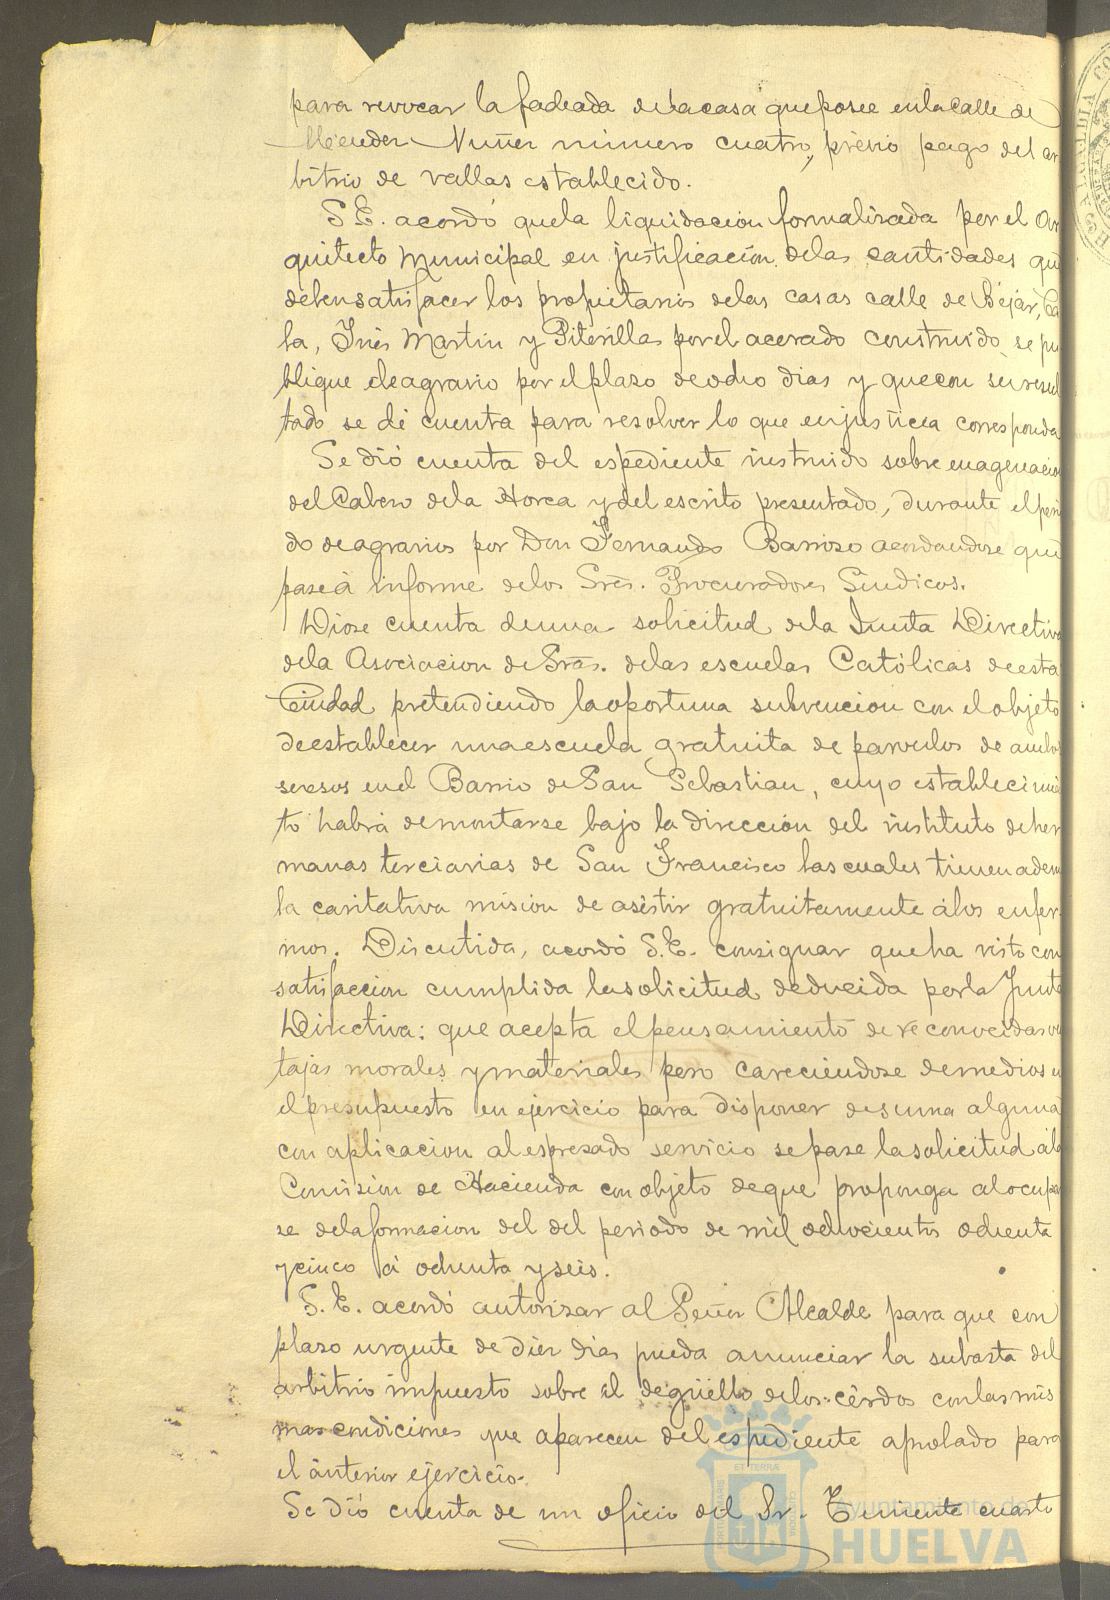 para revocar la fachada de la casa que posee en la Calle de
Mendez Nuñez número cuatro, prévio pago del ar
bitrio de vallas establecido.
S. E. acordó que la liquidacion formalizada por el Ar
quitecto Municipal en justificacion de las cantidades que
deben satisfacer los propietarios de las casas calle de Béjar, Ca
la, Inés Martin y Piterilla por el acerado construido se pu
blique el agravio por el plazo de ocho dias y que con su resul
tado se dé cuenta para resolver lo que en justicia corresponda
Se dió cuenta del espediente instruido sobre enagenacion
del Cabezo de la Horca y del escrito presentado, durante el perio
do de agravios por Don Fernando Barroso acordandose que
pase á informe de los Sres. Procuradores Síndicos.
Diose cuenta de una solicitud de la Junta Directiva
de la Asociacion de Sras. de las escuelas Católicas de esta
Ciudad pretendiendo la oportuna subvencion con el objeto
de establecer una escuela gratuita de parvulos de ambos
secsos en el Barrio de San Sebastian, cuyo establecimien
to habrá de montarse bajo la dirección del instituto de her
manas terciarias de San Francisco las cuales tienen ademas
la caritativa mision de asistir gratuitamente á los enfer
mos. Discutida, acordó S. E. consignar que ha visto con
satisfaccion cumplida la solicitud deducida por la Junta
Directiva: que acepta el pensamiento de reconocidas ven
tajas morales y materiales pero careciéndose de medios en
el presupuesto en ejercicio para disponer de suma alguna
con aplicacion al espresado servicio se pase la solicitud á la
Comision de Hacienda con objeto de que proponga al ocupar
se de la formacion del del periodo de mil ochocientos ochenta
y cinco á ochenta y seis.
S. E. acordó autorizar al Señor Alcalde para que con
plazo urgente de diez dias pueda anunciar la subasta del
arbitrio impuesto sobre el degüello de los cérdos con las mis
mas condiciones que aparecen del espediente aprobado para
el anterior ejercicio.
Se dió cuenta de un oficio del Sr. Teniente cuarto
Ayuntamiento de
HUELVA